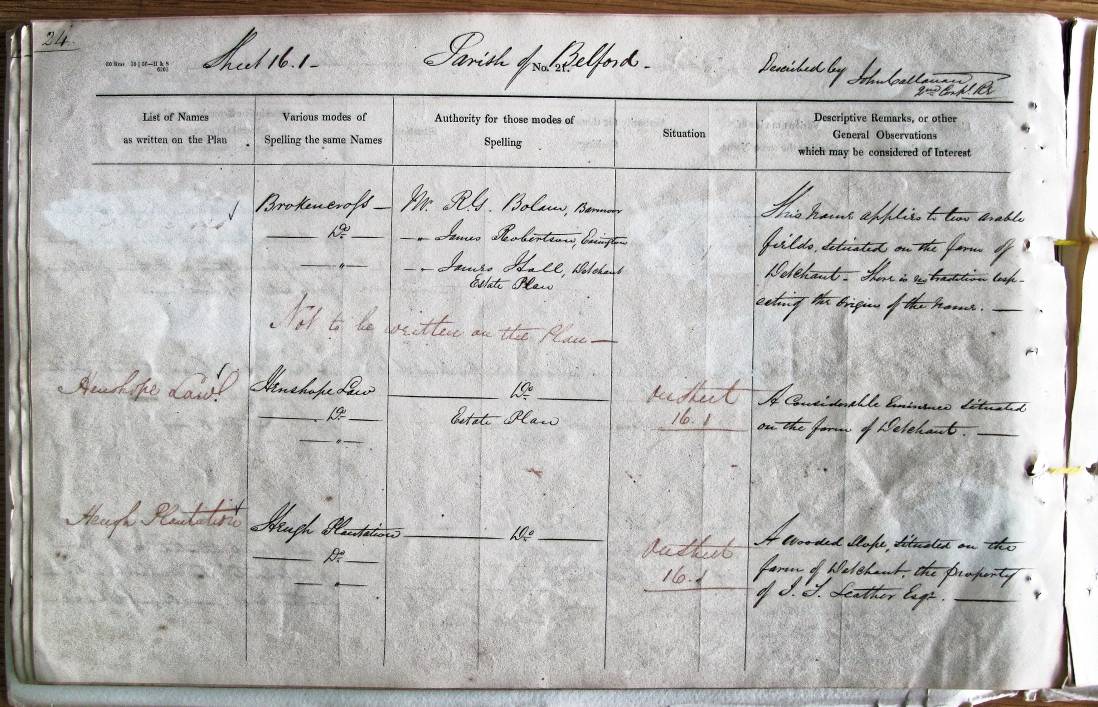 24.
Sheet 16.1 -
Parish of No. 21. Belford -
Described by John Callanan
2nd Corpl. RE
List of Names
as written on the Plan
Various modes of
Spelling the same Names
Authority for those modes of
Spelling
Situation
Descriptive Remarks, or other
General Observations
which may be considered of Interest
Brokencross —
Do
"
Mr. R.G. Bolam, Barmoor
" James Robertson, Easington
" James Hall, Detchant
Estate Plan
This name applies to two arable
fields, situated on the farm of
Detchant - There is no tradition resp-
ecting the Origin of the name. —
Not to be written on the Plan —
Henshope Law
Henshope Law
Do
"
Do
Estate Plan
On Sheet
16.1
A Considerable Eminence situated
on the farm of Detchant. —
Heugh Plantation
Heugh Plantation
Do
"
Do
On Sheet
16.1
A wooded slope, situated on the
farm of Detchant, the property
of J. T. Leather Esqr. —